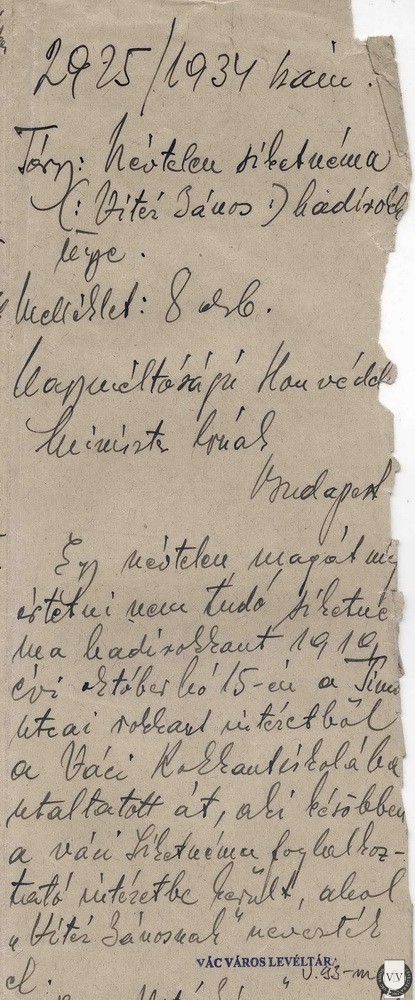 2925/1934 szám.
Tárgy: Névtelen siketnéma
(: Vitéz János :) hadirokk
ügye.
Melléklet: 8 drb.
Nagyméltóságú Honvédel
Miniszter Úrnak
Budapest
Egy névtelen magát meg
értetni nem tudó siketné
ma hadirokkant 1919
évi október hó 15-én a Timó
utcai rokkant intézetből
a Váci Rokkantiskolába
utaltatott át, aki később
a váci Siketnéma foglalkoz-
tató intézetbe került, ahol
„Vitéz Jánosnak" nevezték
el.
VÁC VÁROS LEVÉLTÁRA
V.93-m
VV